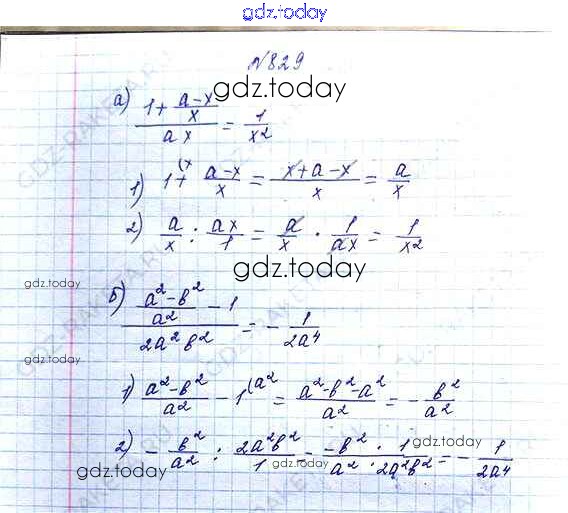 gdz.today
№829
gdz.today
а) (1 + (a-x)/x) / (ax) = 1/x²
1) 1 + (x (a-x)/x = (x+a-x)/x = a/x
2) a/x : ax/1 = a/x · 1/ax = 1/x²
gdz.today
gdz.today
б) ((a²-b²)/a² - 1) / (2a²b²) = - 1/2a⁴
gdz.today
1) (a²-b²)/a² - 1 (a² = (a²-b²-a²)/a² = - b²/a²
2) - b²/a² : 2a²b²/1 = (-b² · 1)/(a² · 2a²b²) = - 1/2a⁴
gdz.today
gdz.today
gdz.today
GDZ-RAKETA.RU